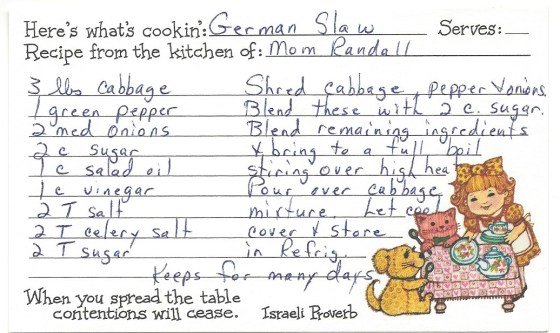 Here's what's cookin': German Slaw Serves:
Recipe from the kitchen of: Mom Randall
3 lbs cabbage Shred cabbage, pepper & onions.
1 green pepper Blend these with 2 c. sugar.
2 med onions Blend remaining ingredients
2 c sugar & bring to a full boil
1 c salad oil stiring over high heat
1 c vinegar Pour over cabbage
2 T salt mixture. Let cool
2 T celery salt cover & store
2 T sugar in Refrig.
Keeps for many days
When you spread the table
contentions will cease. Israeli Proverb